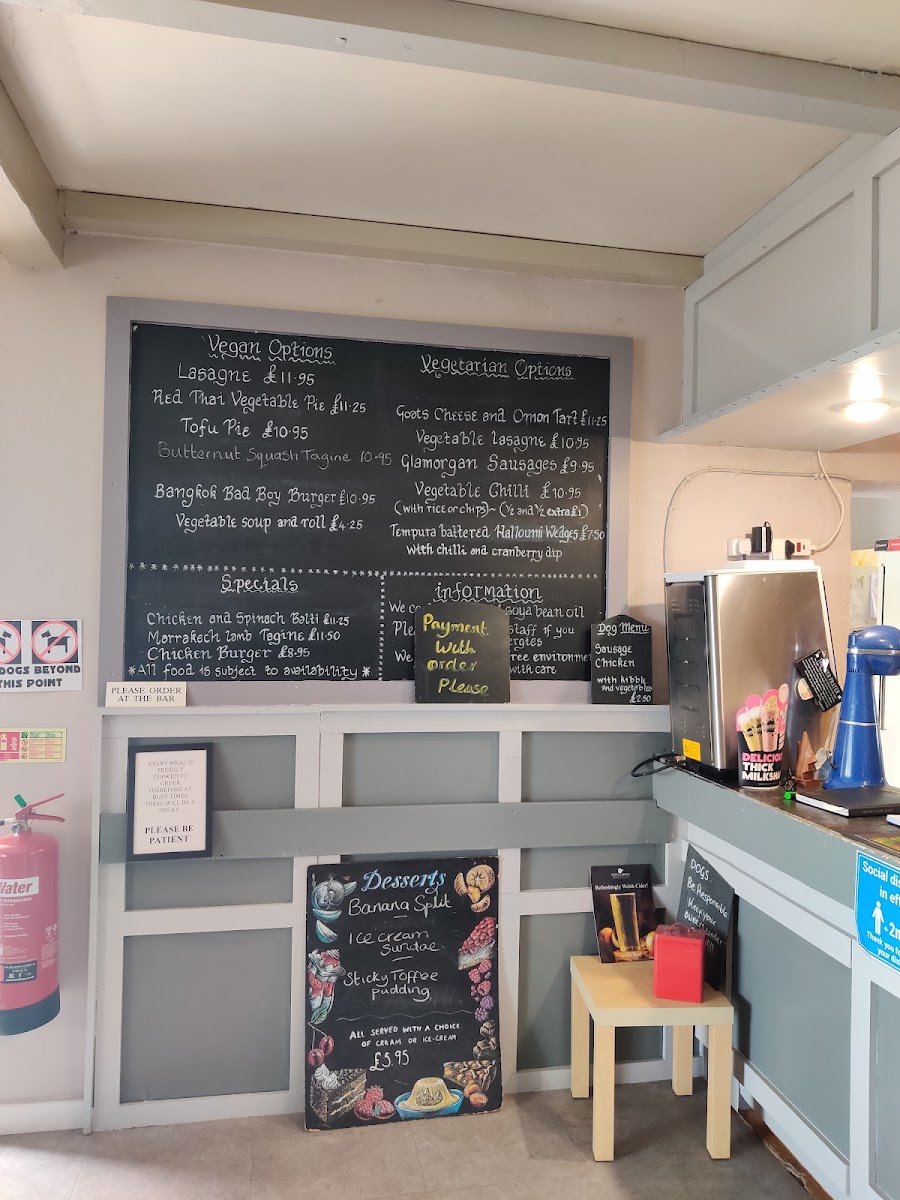 Vegan Options
Lasagne £11.95
Red Thai Vegetable Pie £11.25
Tofu Pie £10.95
Butternut Squash Tagine 10-95
Bangkok Bad Boy Burger £10.95
Vegetable soup and roll £4.25
Vegetarian Options
Goats Cheese and Onion Tart £11.25
Vegetable Lasagne £10.95
Glamorgan Sausages £9.95
Vegetable Chilli £10.95
(with rice or chips)~(½ and ½ extra £1)
Tempura battered Halloumi Wedges £7.50
with chilli and cranberry dip
Specials
Chicken and Spinach Balti £11.25
Marrakech Lamb Tagine £11.50
Chicken Burger £8.95
*All food is subject to availability*
information
We co soya bean oil
Ple staff if you
ergies
We ree environmen
with care
Payment
With
order
Please
Dog Menu
Sausage
Chicken
with kibble
and vegetables
£2.50
DOGS BEYOND
THIS POINT
PLEASE ORDER
AT THE BAR
EVERY MEAL IS
FRESHLY
COOKED TO
ORDER
THEREFORE AT
BUSY TIMES
THERE WILL BE A
DELAY
PLEASE BE
PATIENT
Water
Desserts
Banana Split
Ice cream
Sundae
Sticky Toffee
pudding
ALL SERVED WITH A CHOICE
OF CREAM OR ICE-CREAM
£5.95
Refreshingly Welsh Cider!
DOGS
Be Responsible
Keep your
DELICIOUS
THICK
MILKSHA
Social dis
in effe
2m
Thank you fo
your dis